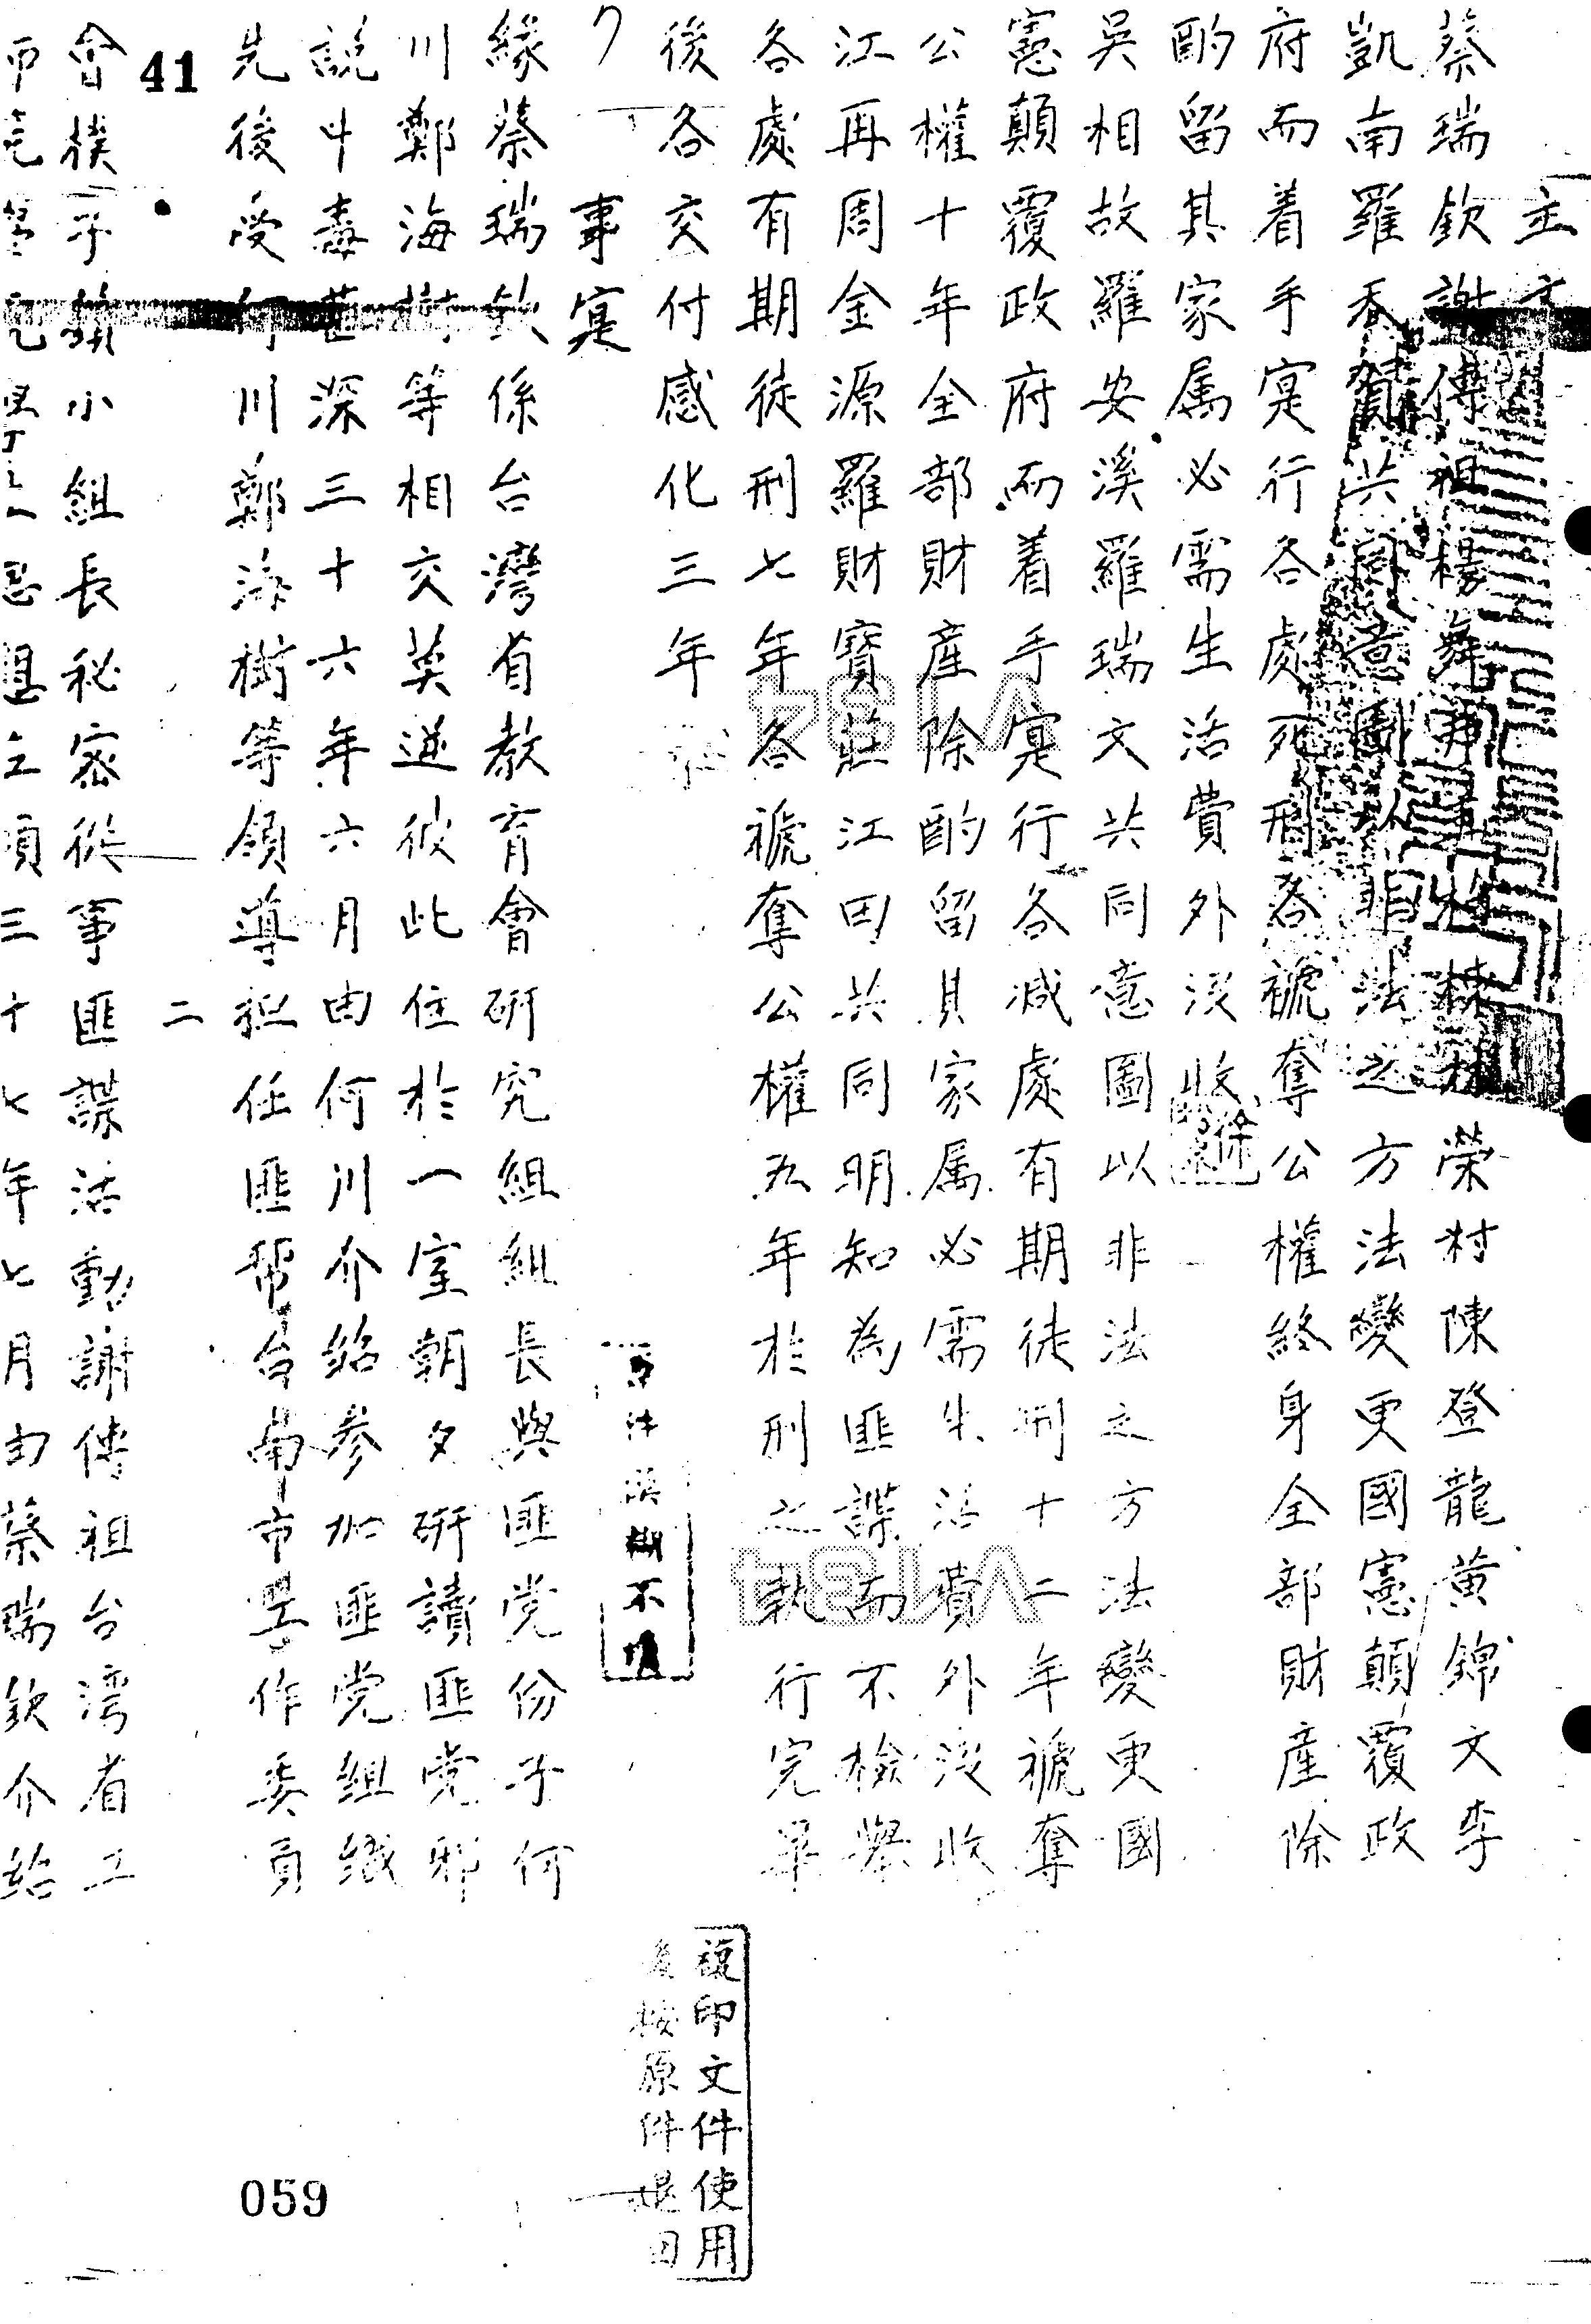 主文
蔡瑞欽謝傅祖楊舞林榮村陳登龍黃錦文李
凱南羅吞共同意圖以非法之方法變更國憲顛覆政
府而着手寔行各處死刑各褫奪公權終身全部財產除
酌留其家属必需生活費外沒收
吳相故羅安溪羅瑞文共同意圖以非法之方法變更國
憲顛覆政府而着手寔行各减處有期徒刑十二年褫奪
公權十年全部財產除酌留其家属必需生活費外沒收
江再周金源羅財寶莊江田共同明知為匪諜而不檢舉
各處有期徒刑七年各褫奪公權五年於刑之執行完畢
後各交付感化三年
事寔
緣蔡瑞欽係台灣省教育會研究組組長與匪党份子何
川鄭海樹等相交莫逆彼此住於一室朝夕研讀匪党邪
說中毒甚深三十六年六月由何川介紹參加匪党組織
先後受何川鄭海樹等領導担任匪帮台南市工作委員
二
41
會樸子小組長秘密從事匪諜活動謝傅祖台湾省工
三十七年七月由蔡瑞欽介紹
原件模糊不清
複印文件使用
後按原件退回
059